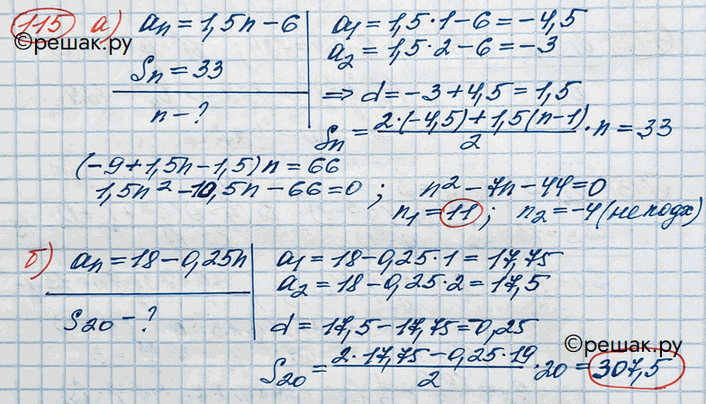 115 а) aₙ = 1,5n − 6
©решак.ру
Sₙ = 33
n − ?
a₁ = 1,5·1 − 6 = −4,5
a₂ = 1,5·2 − 6 = −3
⇒ d = −3 + 4,5 = 1,5
Sₙ = (2·(−4,5) + 1,5(n−1))/2 · n = 33
(−9 + 1,5n − 1,5)n = 66
1,5n² − 10,5n − 66 = 0 ; n² − 7n − 44 = 0
n₁ = 11 ; n₂ = −4 (не подх)
б) aₙ = 18 − 0,25n
S₂₀ − ?
a₁ = 18 − 0,25·1 = 17,75
a₂ = 18 − 0,25·2 = 17,5
d = 17,5 − 17,75 = −0,25
©решак.ру
S₂₀ = (2·17,75 − 0,25·19)/2 · 20 = 307,5